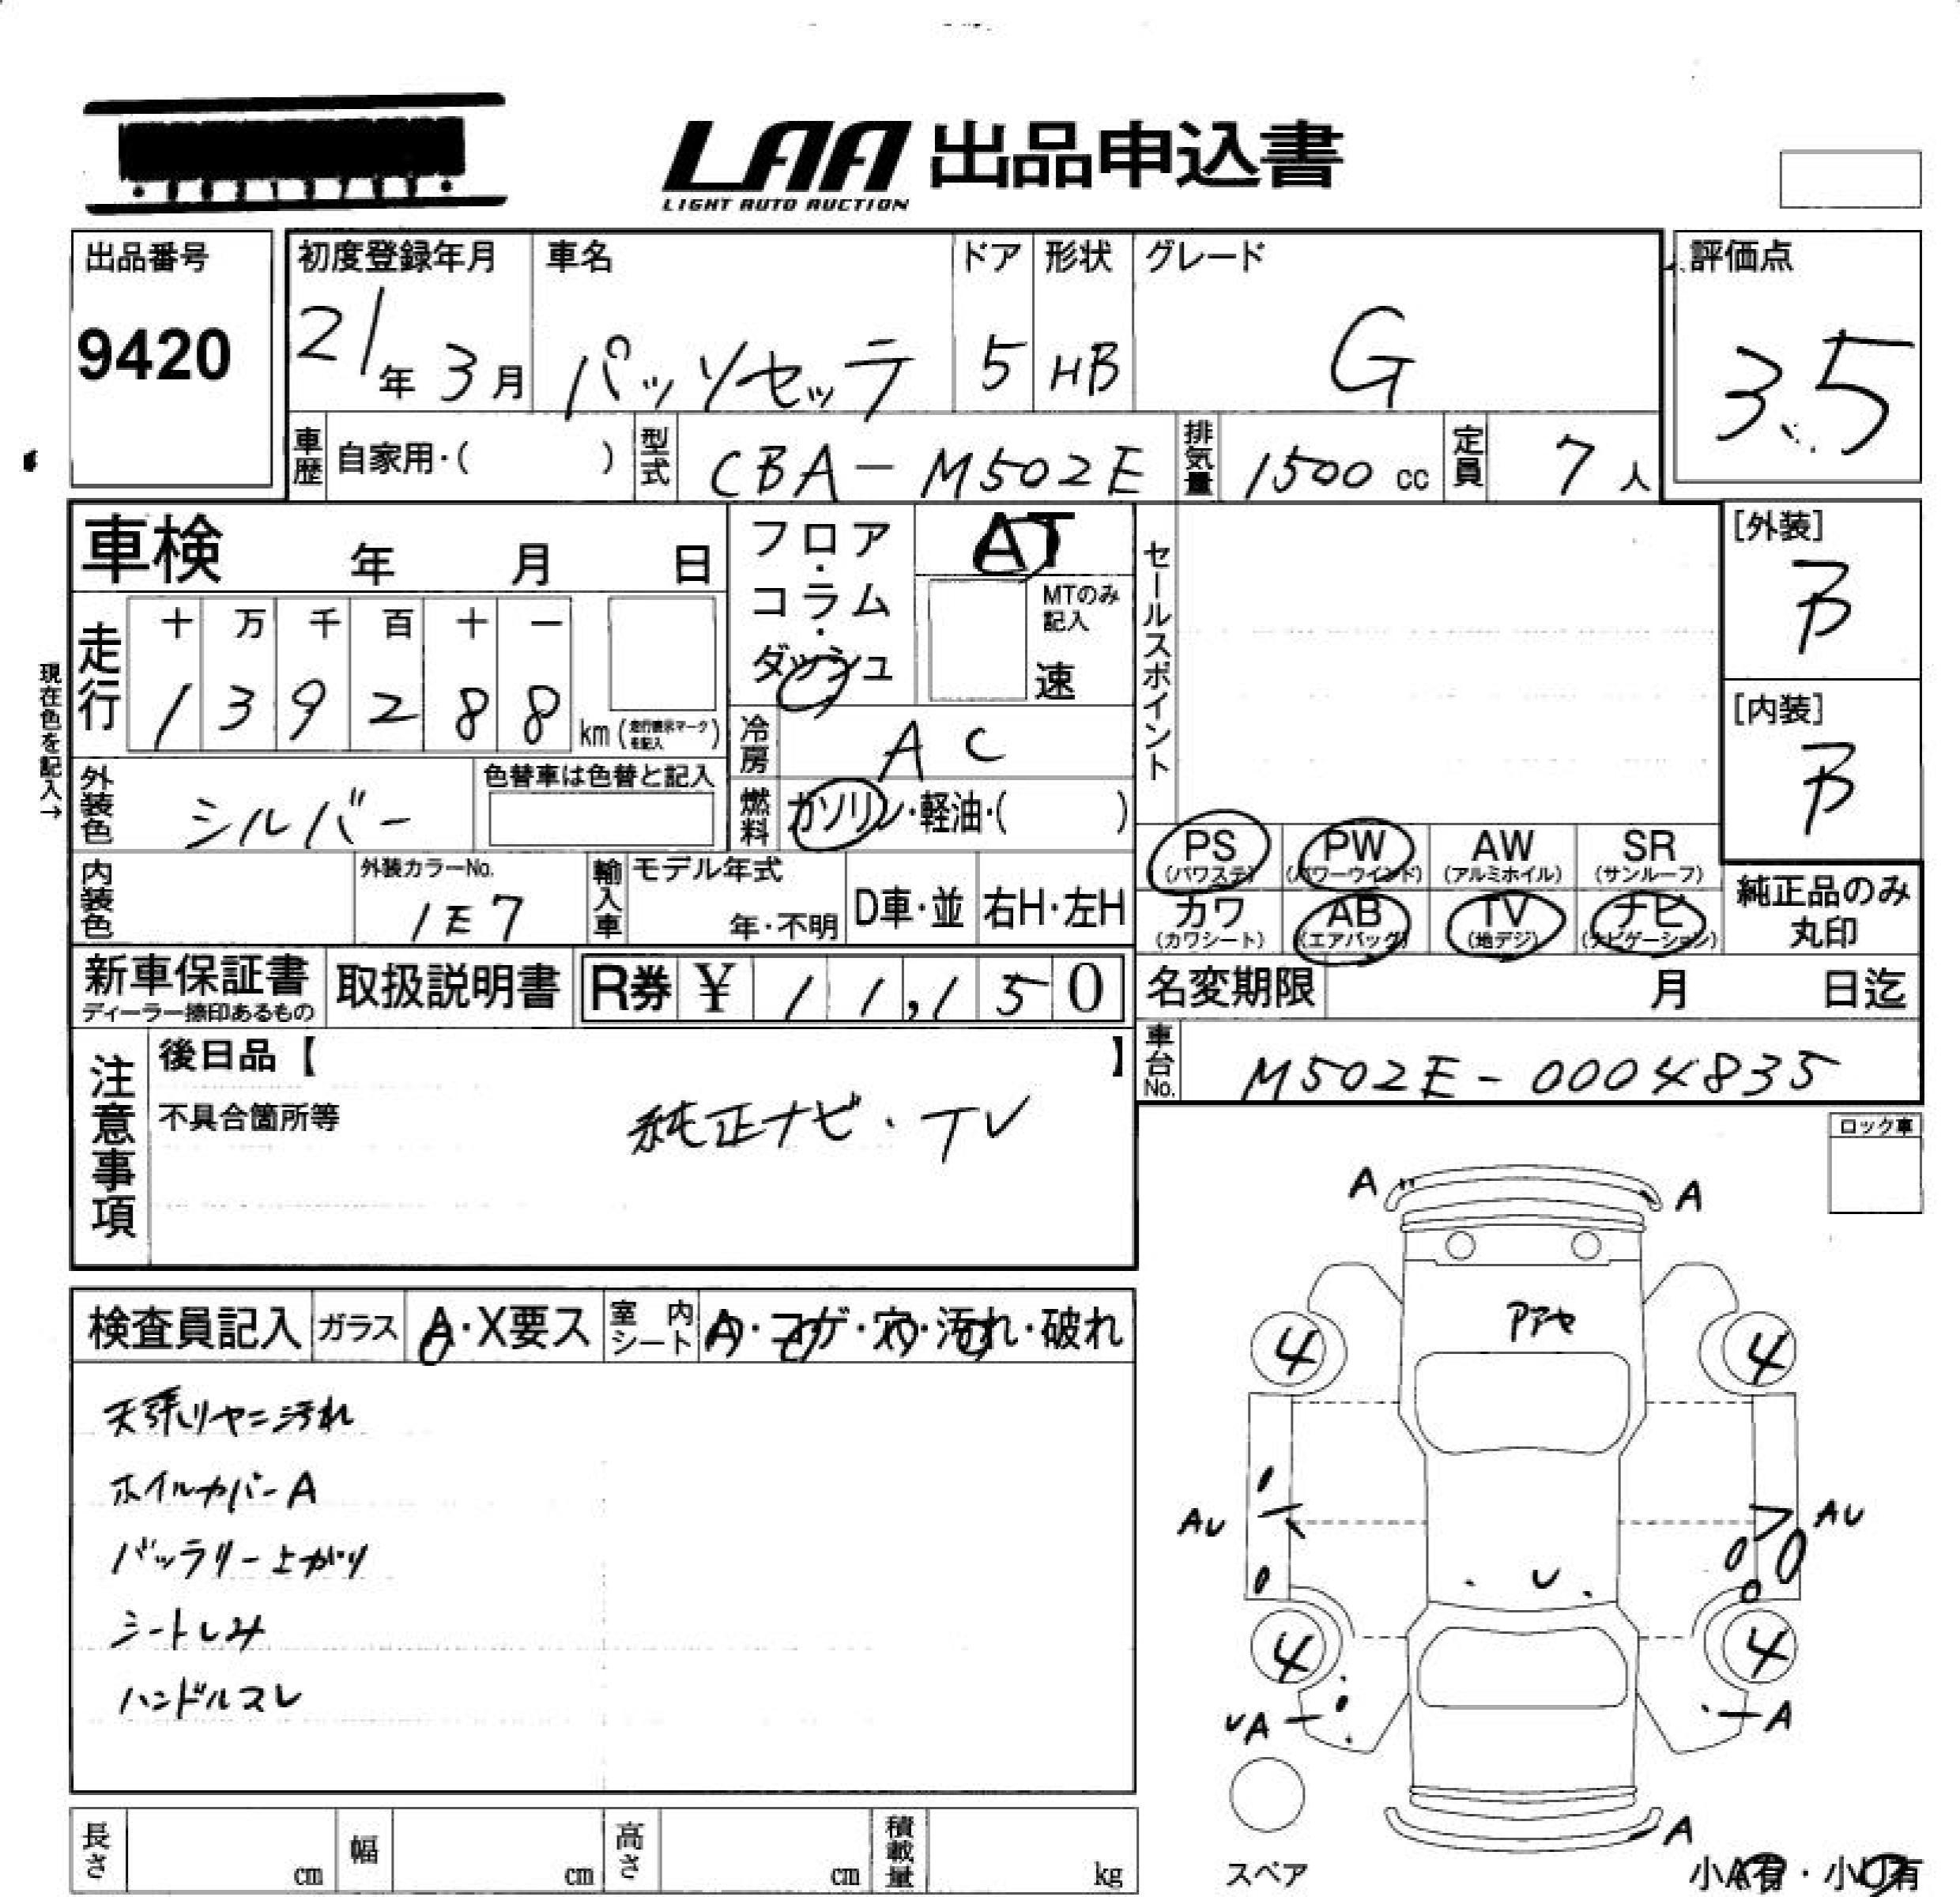 LAA 出品申込書
LIGHT AUTO AUCTION
出品番号
9420
初度登録年月
21年3月
車名
パッソセッテ
ドア
5
形状
HB
グレード
G
評価点
3.5
車歴 自家用・( )
型式 CBA-M502E
排気量 1500 cc
定員 7人
車検 年 月 日
フロア・コラム・ダッシュ
AT
MTのみ記入
速
セールスポイント
[外装]
B
[内装]
B
現在色を記入→
走行
十 万 千 百 十 一
1 3 9 2 8 8 km (走行表示マークを記入)
冷房 AC
外装色 シルバー
色替車は色替と記入
燃料 ガソリン・軽油・( )
PS (パワステ)
PW (パワーウインド)
AW (アルミホイル)
SR (サンルーフ)
カワ (カワシート)
AB (エアバッグ)
TV (地デジ)
ナビ (ナビゲーション)
純正品のみ
丸印
内装色
外装カラーNo.
1E7
輸入車
モデル年式
年・不明
D車・並
右H・左H
新車保証書
ディーラー捺印あるもの
取扱説明書
R券 ¥ 11,150
名変期限 月 日迄
車台No. M502E-0004835
注意事項
後日品【 】
不具合箇所等
純正ナビ・TV
ロック車
検査員記入
ガラス A・X要ス
室内シート A・コゲ・穴・汚れ・破れ
天張りヤニ汚れ
ホイルカバーA
バッテリー上がり
シートしみ
ハンドルスレ
A A
4 4
AU AU
U
4 4
UA A
A
スペア
小A有・小U有
長さ cm
幅 cm
高さ cm
積載量 kg